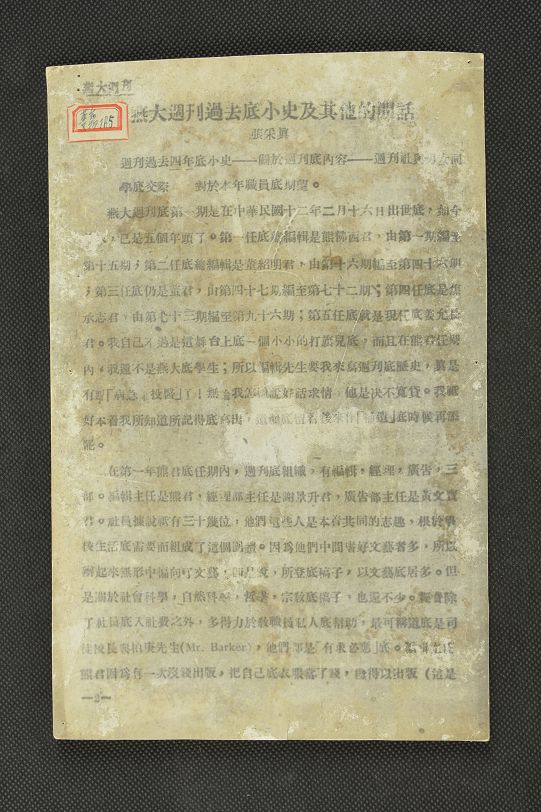 燕大週刊
燕大週刊過去底小史及其他的閒話
張采眞
週刊過去四年底小史——關於週刊底內容——週刊社與
學底交際 對於本年職員底期望。
燕大週刊底第一期是在中華民國十二年二月十六日出世底,
已是五個年頭了。第一任底總編輯是熊佛西君,由第一期編至
第十五期;第二任底總編輯是董紹明君,由第十六期編至第四十六期
;第三任底仍是董君,由第四十七期編至第七十二期;第四任底是焦
承志君,由第七十三期編至第九十六期;第五任底就是現任底姜允長
君。我自己不過是這舞台上底一個小小的打旗兒底,而且在熊君任期
內,我還不是燕大底學生;所以編輯先生要我來寫週刊底歷史,眞是
有點「病急投醫」了!無論我怎樣說好話求情,他是決不寬貸。我祇
好本着我所知道所記得底寫出,底留着後來作「補遺」底時候再添
罷。
在第一年熊君底任期內,週刊底組織,有編輯,經理,廣告,三
部。編輯主任是熊君,經理部主任是謝景升君,廣告部主任是黃文寶
君。社員據說祇有三十幾位,他們這些人是本着共同的志趣,根於學
校生活底需要而組成了這個團體。因爲他們中間嗜好文藝者多,所以
辦起來無形中偏向了文藝,就是說,所登底稿子,以文藝底居多。但
是關於社會科學,自然科學,哲學,宗敎底稿子,也還不少。經費除
了社員底入社費之外,多得力於敎職員私人底幫助,最可稱道底是司
徒校長與柏庚先生(Mr. Barker),他們都是「有求必應」底。
熊君因爲有一次沒錢出版,把自己底衣服當了錢,纔得以出版(這是
—2—